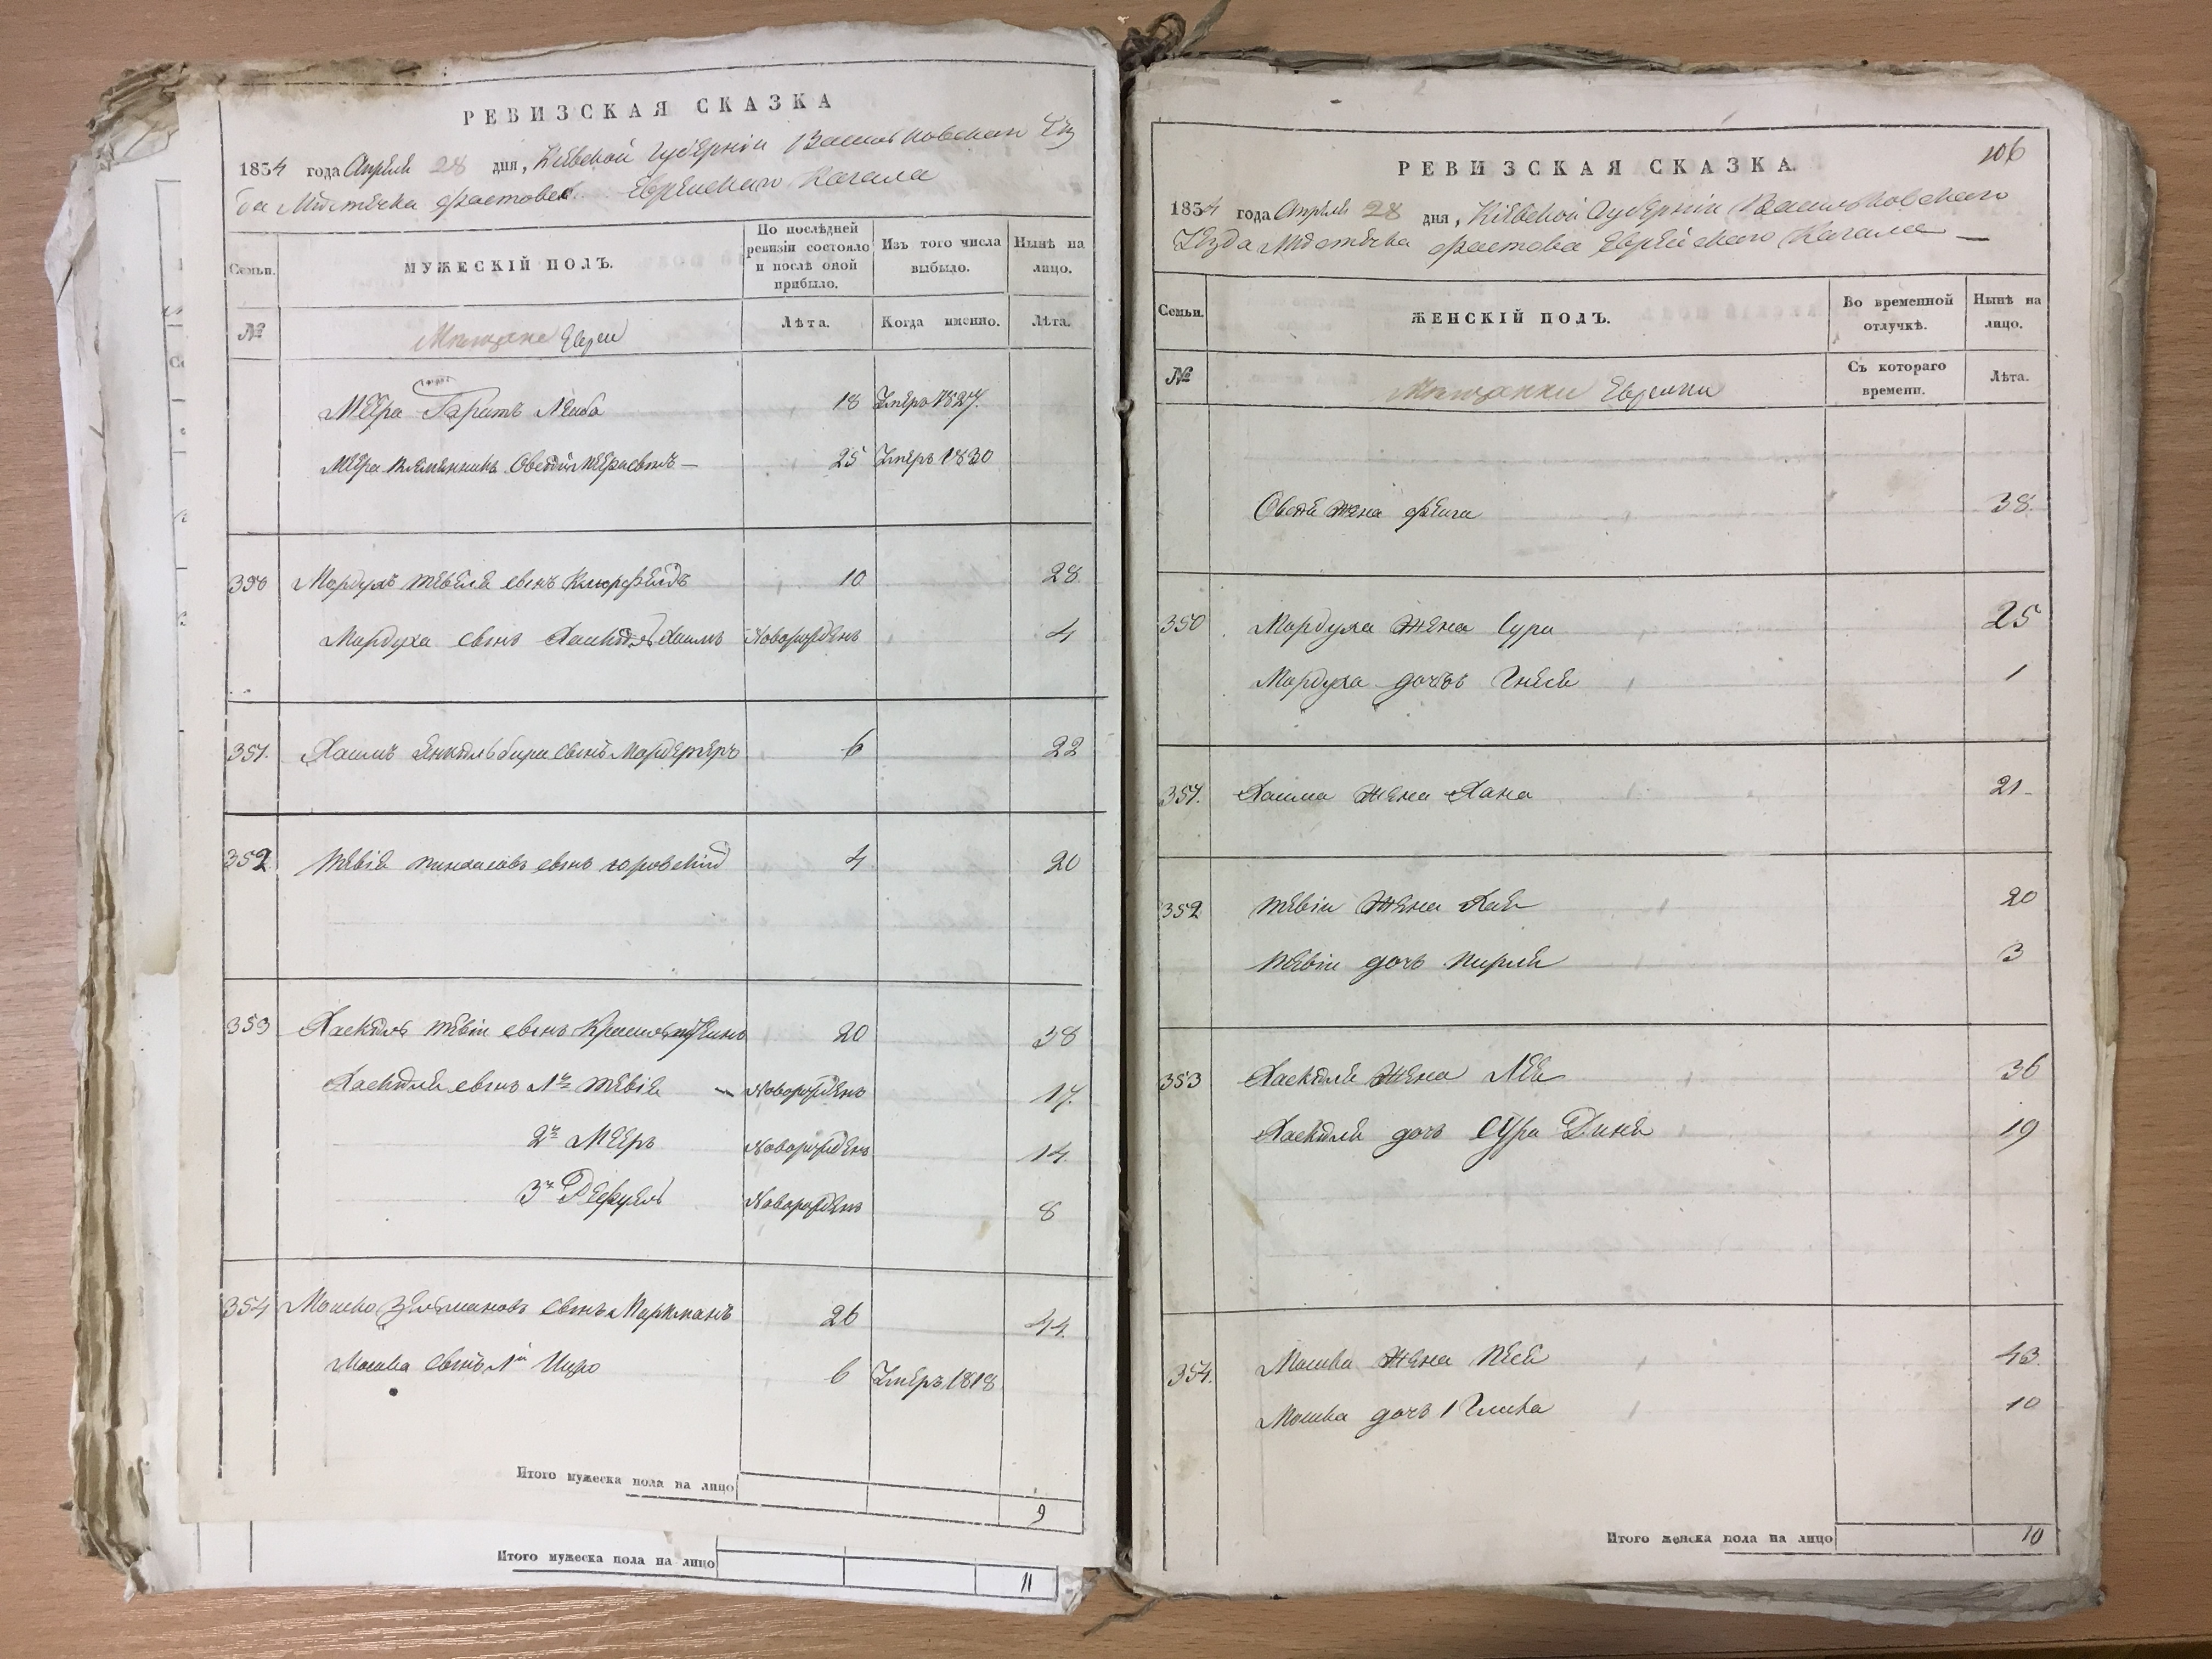 РЕВИЗСКАЯ СКАЗКА
1834 года Апреля 28 дня, Кіевской Губерніи Васильковскаго Уѣз
да Мѣстечка Фастова Еврейскаго Кагала
Семьи.
МУЖЕСКІЙ ПОЛЪ.
По послѣдней ревизіи состояло и послѣ оной прибыло.
Изъ того числа выбыло.
Нынѣ на лицо.
№
Мѣщане Евреи
Лѣта.
Когда именно.
Лѣта.
Меера братъ Лейба 18 Умеръ 1827.
Меера племянникъ 25 Умеръ 1830
350 Мордухъ Тевеля сынъ 10 28
Мордуха сынъ Хаимъ Новорожденъ 4
351. Хаимъ сынъ 6 22
352 Тевія Пинхасовъ сынъ 4 20
353 Хаскель Тевіи сынъ 20 38
Хаскеля сынъ 1й Тевія Новорожденъ 17.
2й Мееръ Новорожденъ 14
3й Рефуель Новорожденъ 8
354 Мошко Зельмановъ сынъ Маркманъ 26 44.
Мошка сынъ 1й Ицко 6 Умеръ 1818
Итого мужеска пола на лицо 9
Итого мужеска пола на лицо 11
106
РЕВИЗСКАЯ СКАЗКА.
1834 года Апреля 28 дня, Кіевской Губерніи Васильковскаго
Уѣзда Мѣстечка Фастова Еврейскаго Кагала
Семьи.
ЖЕНСКІЙ ПОЛЪ.
Во временной отлучкѣ.
Нынѣ на лицо.
№
Мѣщанки Еврейки
Съ котораго времени.
Лѣта.
жена Фейга 38.
350 Мордуха жена Сура 25
Мордуха дочь Гнеся 1
351. Хаима жена Хана 21
352 Тевіи жена Хая 20
Тевіи дочь Перля 3
353 Хаскеля жена Лея 36
Хаскеля дочь Сура Дина 19
354. Мошка жена Песя 43.
Мошка дочь 1 Глика 10
Итого женска пола на лицо 10